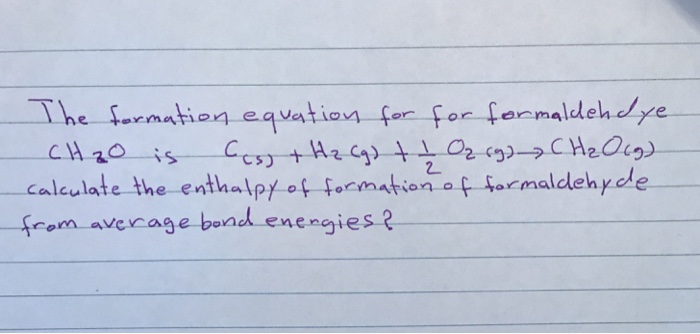 The formation equation for for formaldehdye
CH20 is C(s) + H2 (g) + 1/2 O2 (g) → CH2O(g)
calculate the enthalpy of formation of formaldehyde
from average bond energies?